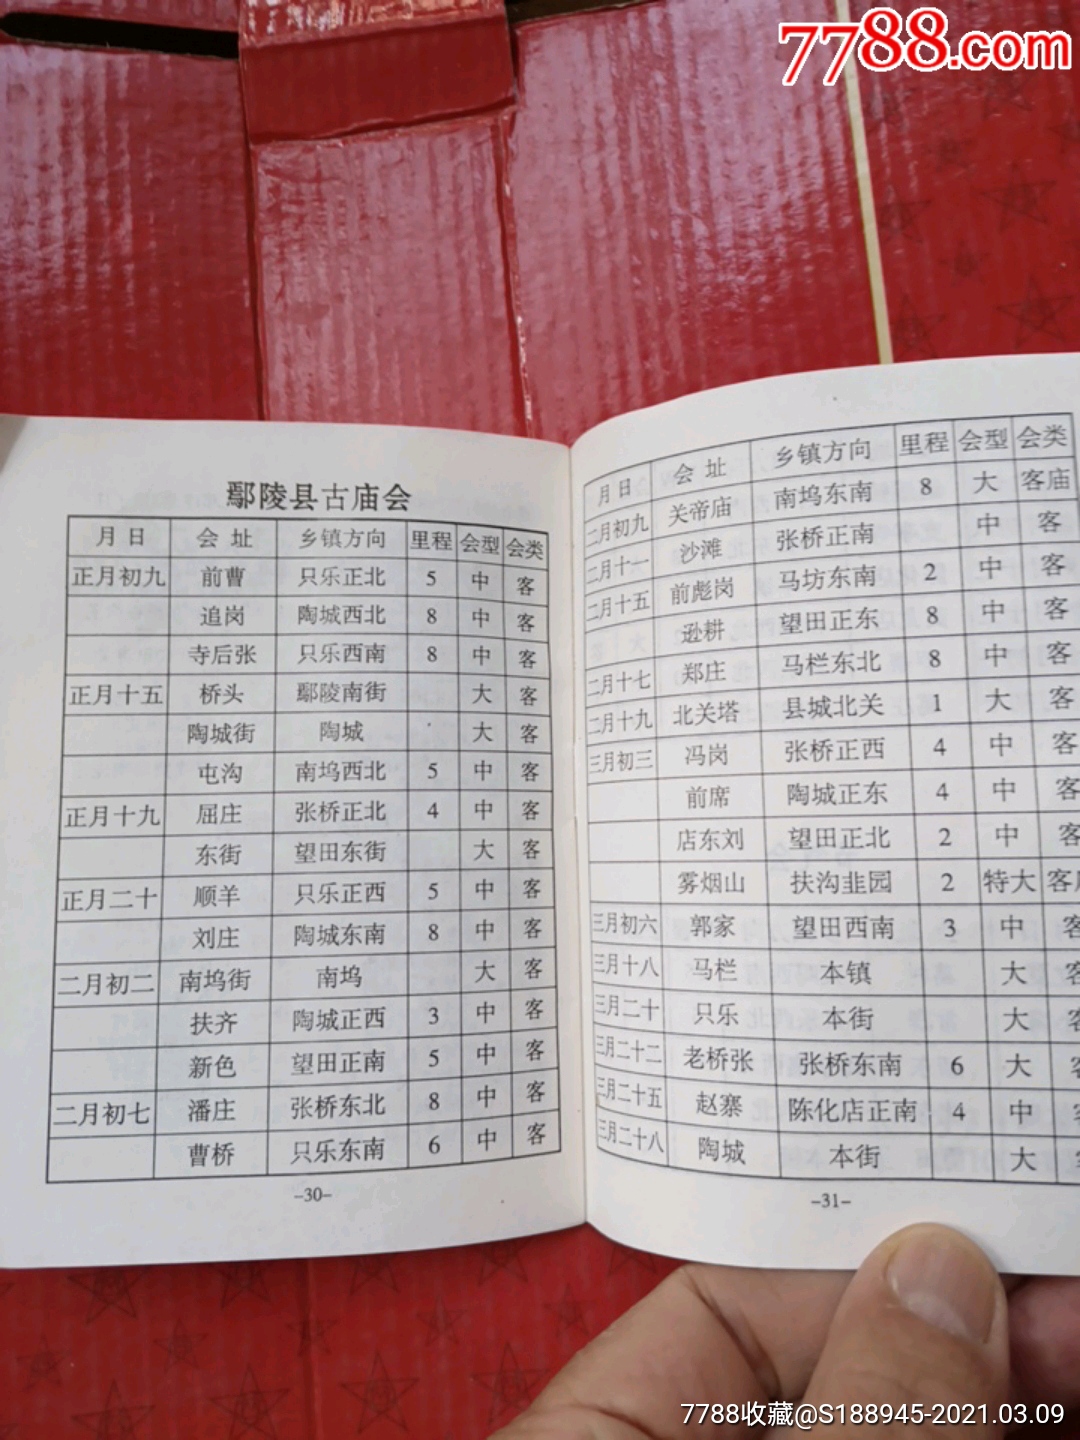 7788.com
鄢陵县古庙会
月日 会址 乡镇方向 里程 会型 会类
正月初九 前曹 只乐正北 5 中 客
追岗 陶城西北 8 中 客
寺后张 只乐西南 8 中 客
正月十五 桥头 鄢陵南街 大 客
陶城街 陶城 大 客
屯沟 南坞西北 5 中 客
正月十九 屈庄 张桥正北 4 中 客
东街 望田东街 大 客
正月二十 顺羊 只乐正西 5 中 客
刘庄 陶城东南 8 中 客
二月初二 南坞街 南坞 大 客
扶齐 陶城正西 3 中 客
新色 望田正南 5 中 客
二月初七 潘庄 张桥东北 8 中 客
曹桥 只乐东南 6 中 客
-30-
月日 会址 乡镇方向 里程 会型 会类
二月初九 关帝庙 南坞东南 8 大 客庙
二月十一 沙滩 张桥正南 中 客
二月十五 前彪岗 马坊东南 2 中 客
逊耕 望田正东 8 中 客
二月十七 郑庄 马栏东北 8 中 客
二月十九 北关塔 县城北关 1 大 客
三月初三 冯岗 张桥正西 4 中 客
前席 陶城正东 4 中 客
店东刘 望田正北 2 中 客
雾烟山 扶沟韭园 2 特大 客
三月初六 郭家 望田西南 3 中 客
三月十八 马栏 本镇 大 客
三月二十 只乐 本街 大 客
三月二十二 老桥张 张桥东南 6 大
三月二十五 赵寨 陈化店正南 4 中
三月二十八 陶城 本街 大
-31-
7788收藏@S188945-2021.03.09